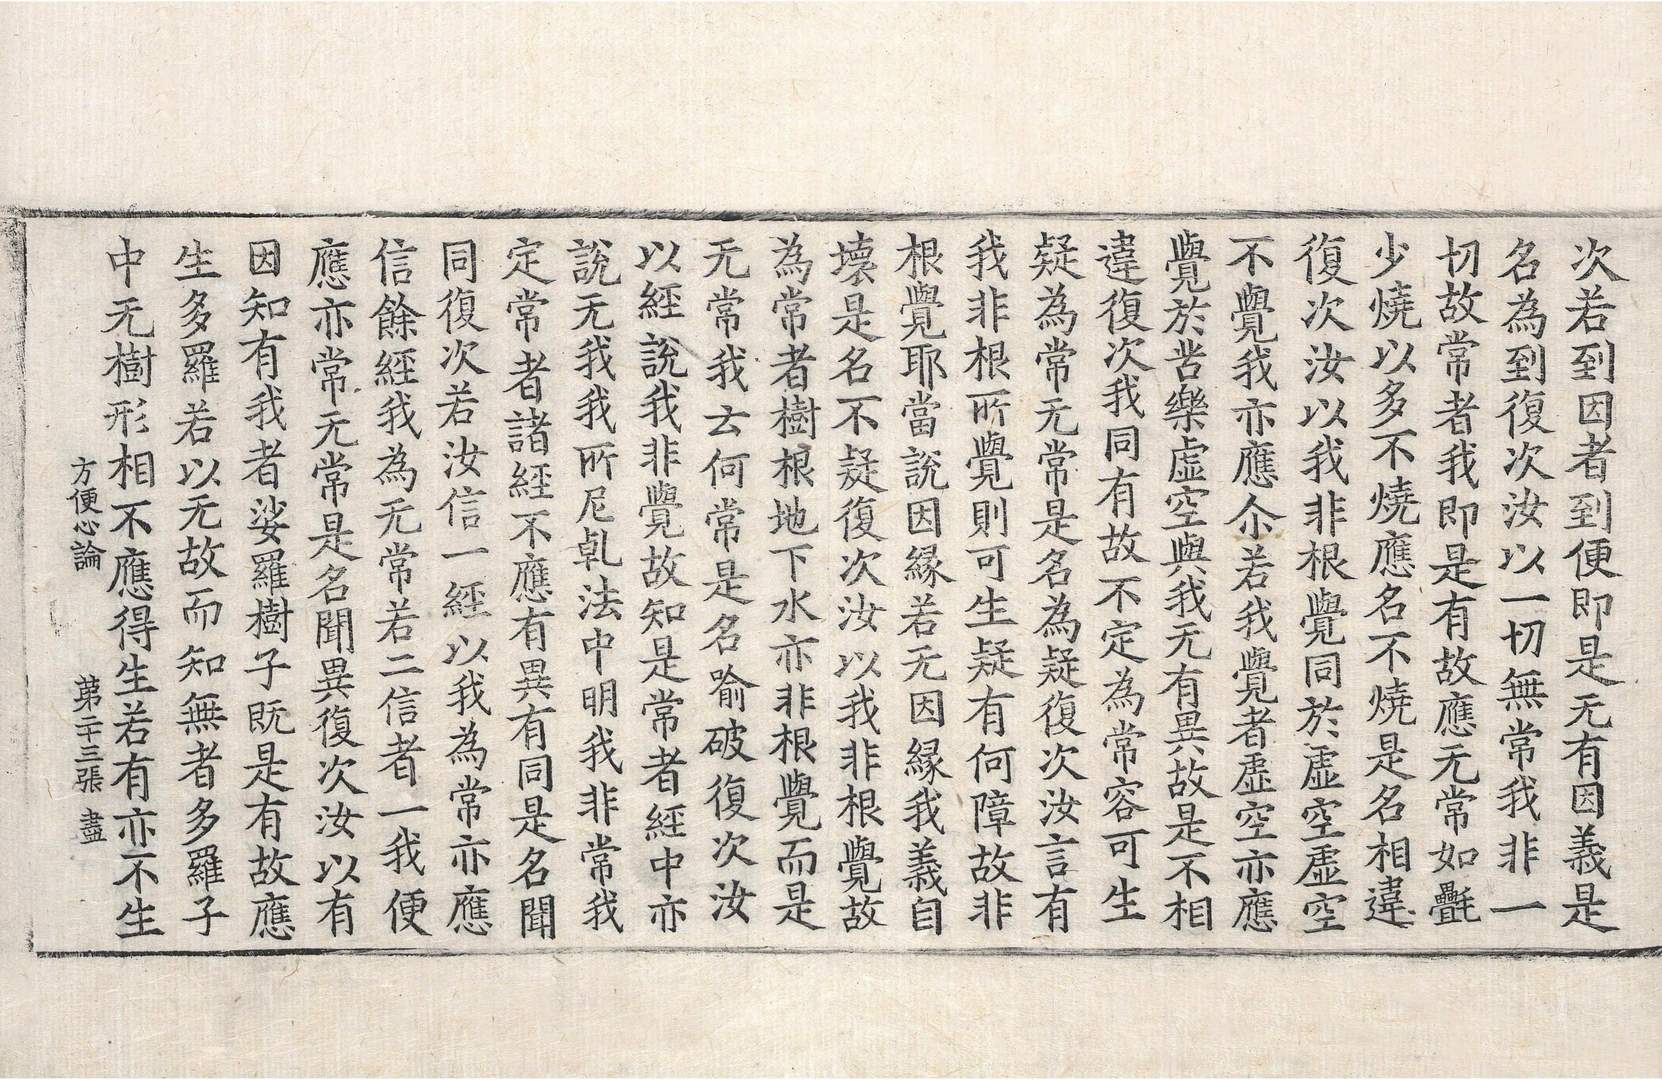 次若到因者到便即是无有因義是
名為到復次汝以一切無常我非一
切故常者我即是有故應无常如氎
少燒以多不燒應名不燒是名相違
復次汝以我非根覺同於虛空虛空
不覺我亦應尒若我覺者虛空亦應
覺於苦樂虛空與我无有異故是不相
違復次我同有故不定為常容可生
疑為常无常是名為疑復次汝言有
我非根所覺則可生疑有何障故非
根覺耶當說因緣若无因緣我義自
壞是名不疑復次汝以我非根覺故
為常者樹根地下水亦非根覺而是
无常我云何常是名喻破復次汝
以經說我非覺故知是常者經中亦
說无我我所尼乹法中明我非常我
定常者諸經不應有異有同是名聞
同復次若汝信一經以我為常亦應
信餘經我為无常若二信者一我便
應亦常无常是名聞異復次汝以有
因知有我者娑羅樹子既是有故應
生多羅若以无故而知無者多羅子
中无樹形相不應得生若有亦不生
方便心論 第二十三張 盡